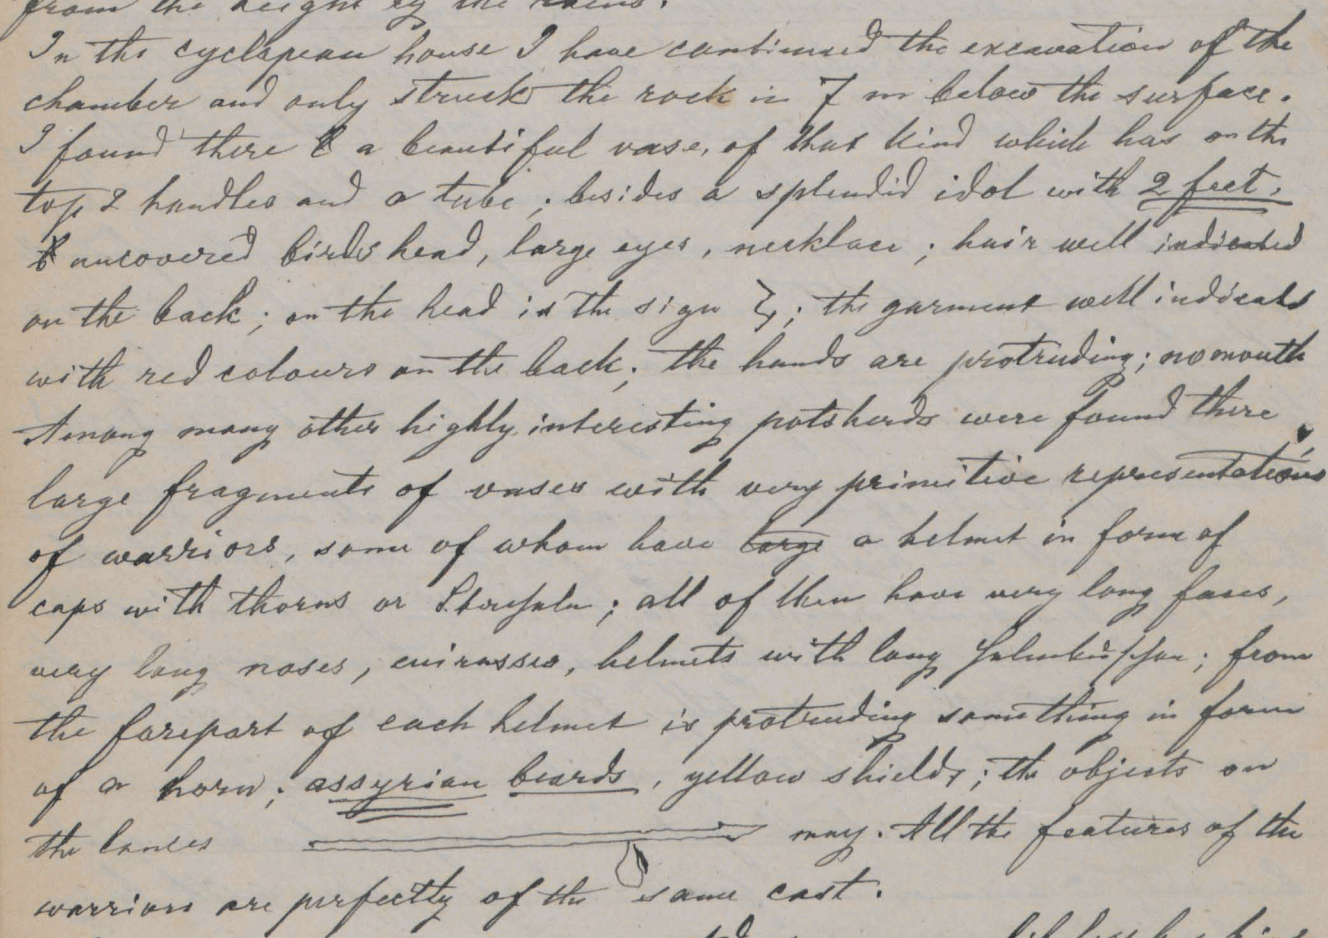 from the height by the rains.
In the cyclopean house I have continued the excavation of the
chamber and only struck the rock in 7 m below the surface.
I found there a beautiful vase, of that kind which has on the
top 2 handles and a tube; besides a splendid idol with 2 feet,
uncovered birdshead, large eyes, necklace; hair well indicated
on the back; on the head is the sign ; the garment well indicats
with red colours on the back; the hands are protruding; no mouth
Among many other highly interesting potsherds were found there
large fragments of vases with very primitive representations
of warriors, some of whom have large a helmet in form of
caps with thorns or ; all of them have very long faces,
very long noses, cuirasses, helmets with long Helmbüschen; from
the forepart of each helmet is protruding something in form
of a horn; assyrian beards, yellow shields; the objects on
the lances may. All the features of the
warriors are perfectly of the same cast.